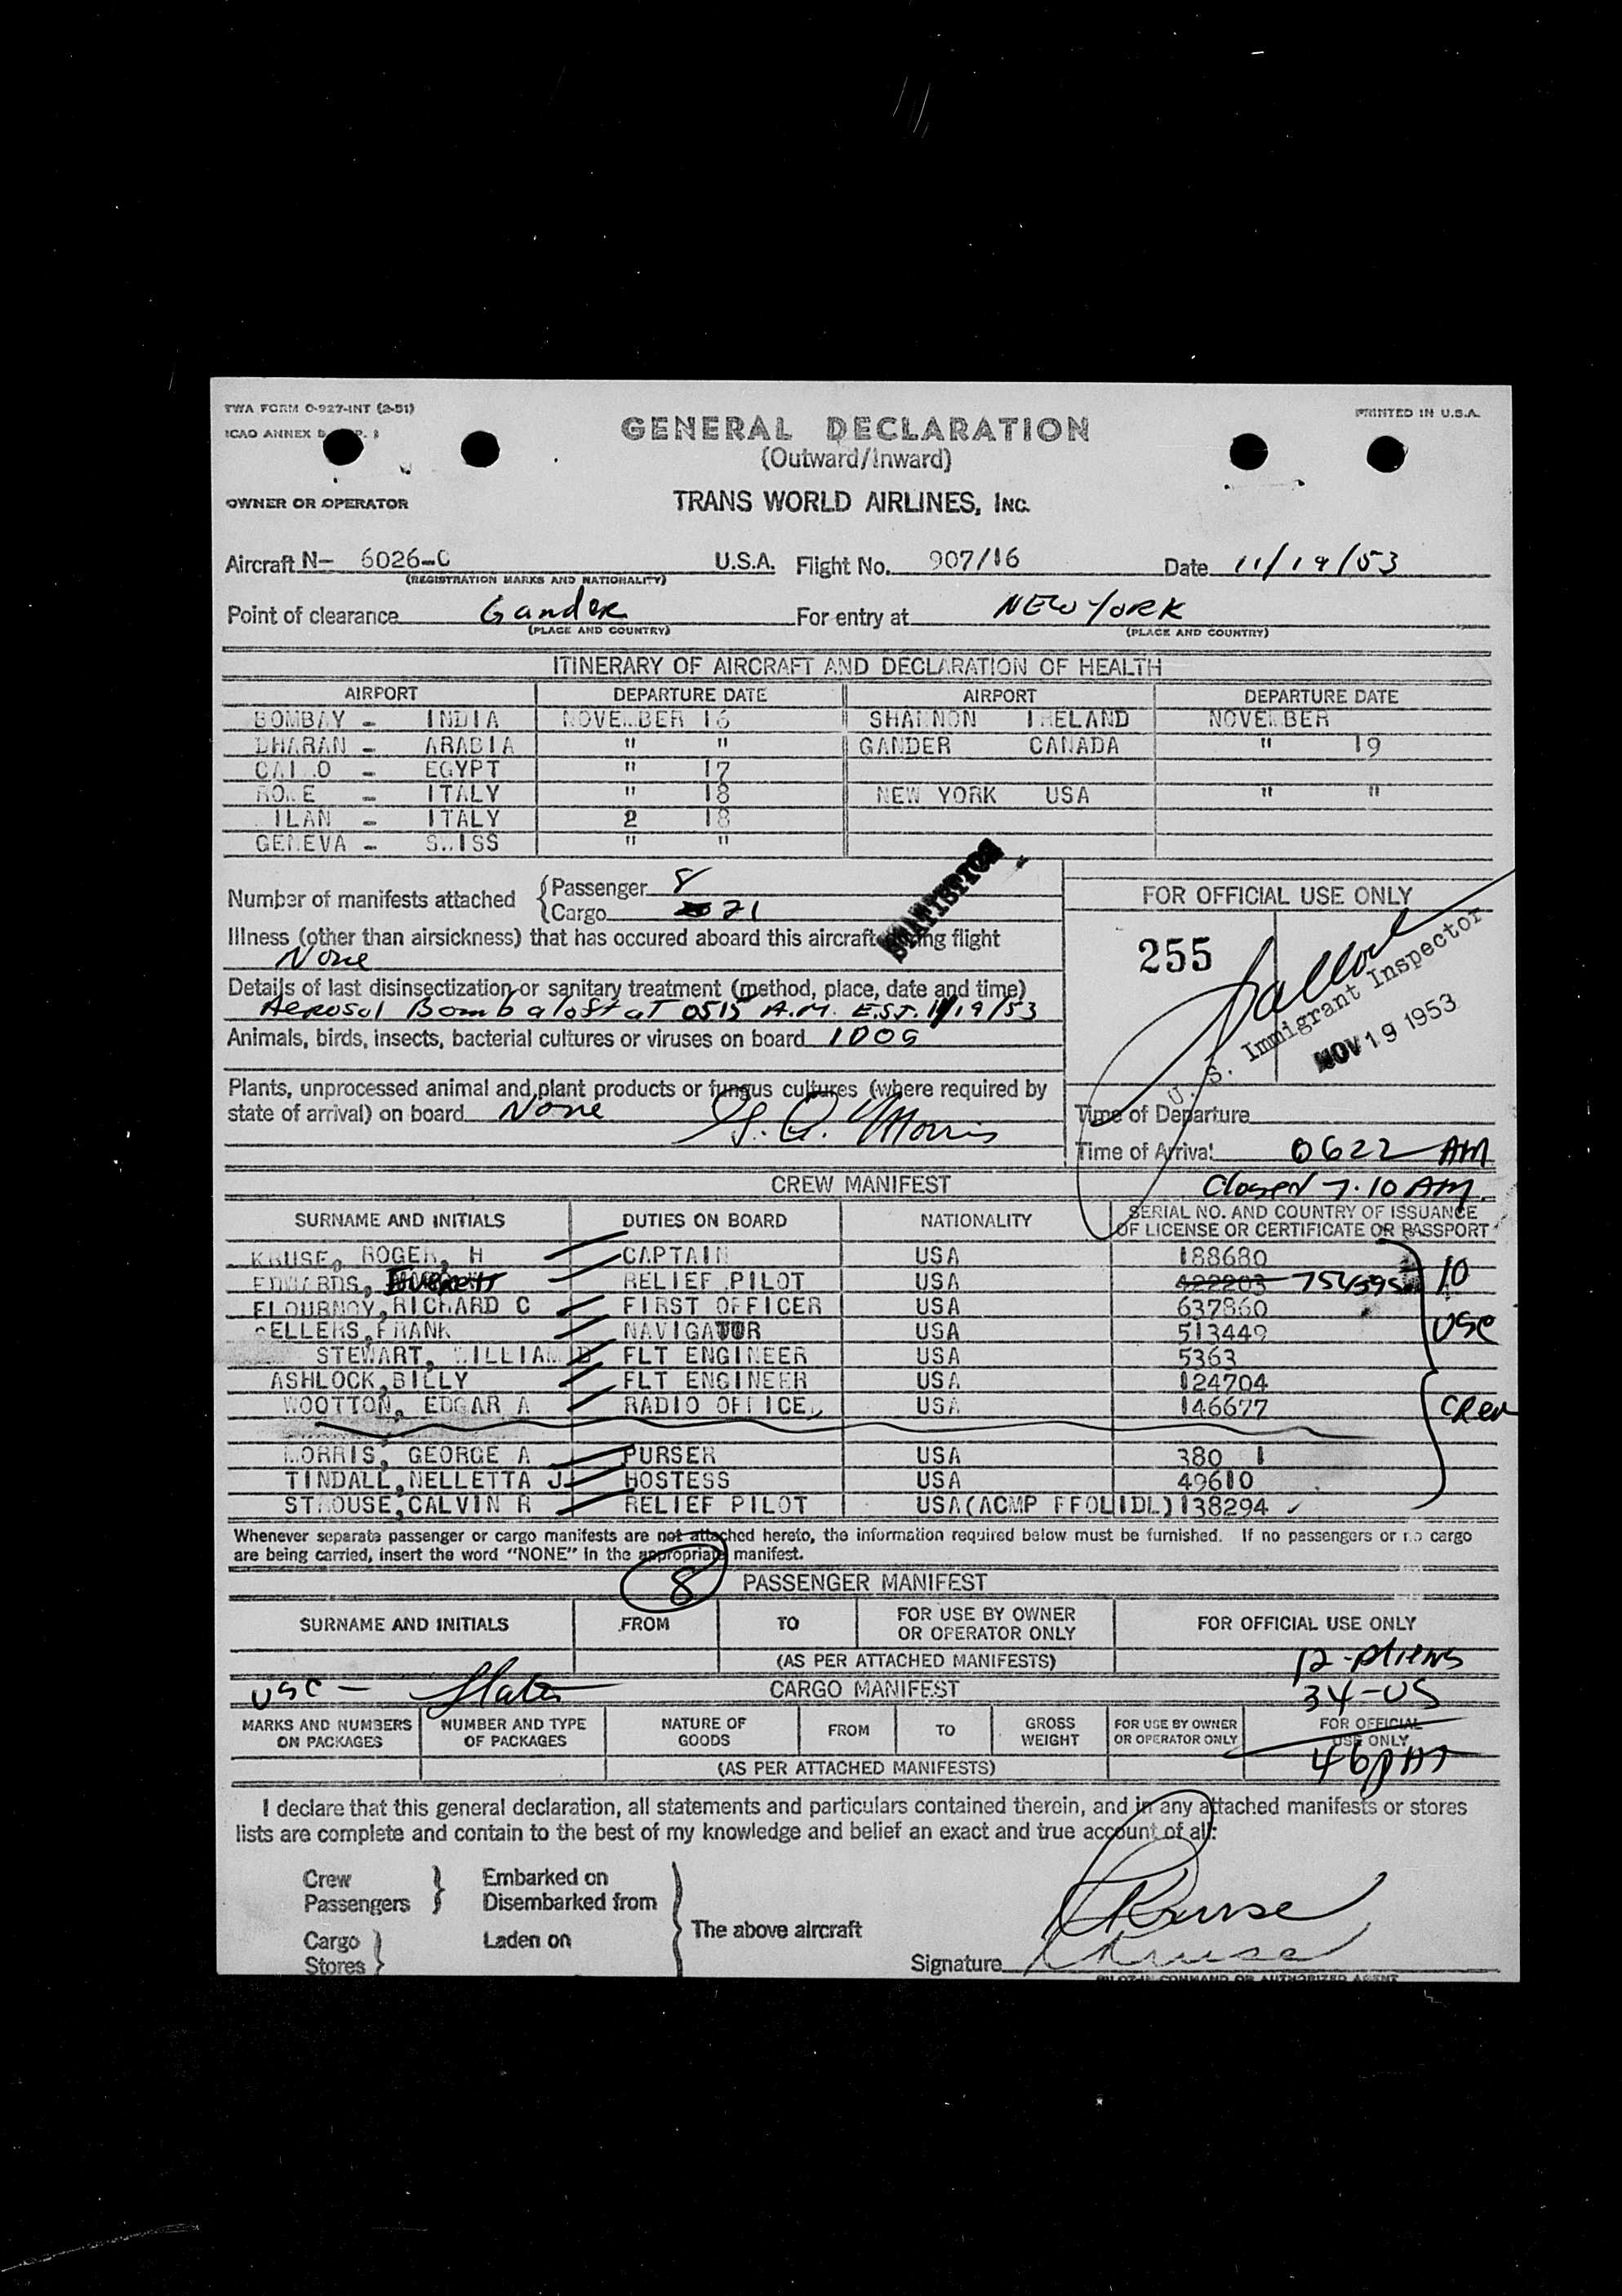 TWA FORM O-927-INT (2-51)
PRINTED IN U.S.A.
ICAO ANNEX
GENERAL DECLARATION
(Outward/Inward)
OWNER OR OPERATOR
TRANS WORLD AIRLINES, INC.
Aircraft N- 6026-C U.S.A. Flight No. 907/16 Date 11/19/53
(REGISTRATION MARKS AND NATIONALITY)
Point of clearance Gander For entry at NEW YORK
(PLACE AND COUNTRY) (PLACE AND COUNTRY)
ITINERARY OF AIRCRAFT AND DECLARATION OF HEALTH
AIRPORT DEPARTURE DATE AIRPORT DEPARTURE DATE
BOMBAY - INDIA NOVEMBER 16 SHANNON IRELAND NOVEMBER
DHARAN - ARABIA " " GANDER CANADA " 19
CAIRO - EGYPT " 17
ROME - ITALY " 18 NEW YORK USA " "
MILAN - ITALY 2 18
GENEVA - SWISS " "
Number of manifests attached Passenger 8
Cargo 21
STATISTICS
FOR OFFICIAL USE ONLY
Illness (other than airsickness) that has occured aboard this aircraft during flight
None
255
U. S. Immigrant Inspector
NOV 19 1953
Details of last disinsectization or sanitary treatment (method, place, date and time)
Aerosol Bomb aloft at 0515 A.M. E.S.T. 11/19/53
Animals, birds, insects, bacterial cultures or viruses on board 1 DOG
Plants, unprocessed animal and plant products or fungus cultures (where required by
state of arrival) on board None G. A. Morris
Time of Departure
Time of Arrival 0622 AM
CREW MANIFEST Closed 7.10 AM.
SURNAME AND INITIALS DUTIES ON BOARD NATIONALITY SERIAL NO. AND COUNTRY OF ISSUANCE
OF LICENSE OR CERTIFICATE OR PASSPORT
KRUSE, ROGER, H CAPTAIN USA 188680
EDWARDS, Everett RELIEF PILOT USA 422203
10
FLOURNOY, RICHARD C FIRST OFFICER USA 637860
SELLERS, FRANK NAVIGATOR USA 513449
USC
STEWART, WILLIAM D FLT ENGINEER USA 5363
ASHLOCK, BILLY FLT ENGINEER USA 124704
WOOTTON, EDGAR A RADIO OFFICE USA 146677
Crew
MORRIS, GEORGE A PURSER USA 380 1
TINDALL, NELLETTA J HOSTESS USA 49610
STROUSE, CALVIN R RELIEF PILOT USA(ACMP FFOLIDL) 138294
Whenever separate passenger or cargo manifests are not attached hereto, the information required below must be furnished. If no passengers or no cargo
are being carried, insert the word "NONE" in the appropriate manifest.
8 PASSENGER MANIFEST
SURNAME AND INITIALS FROM TO FOR USE BY OWNER
OR OPERATOR ONLY FOR OFFICIAL USE ONLY
(AS PER ATTACHED MANIFESTS) 12-Aliens
USC - CARGO MANIFEST 34-US
MARKS AND NUMBERS
ON PACKAGES NUMBER AND TYPE
OF PACKAGES NATURE OF
GOODS FROM TO GROSS
WEIGHT FOR USE BY OWNER
OR OPERATOR ONLY FOR OFFICIAL
USE ONLY
(AS PER ATTACHED MANIFESTS) 46
I declare that this general declaration, all statements and particulars contained therein, and in any attached manifests or stores
lists are complete and contain to the best of my knowledge and belief an exact and true account of all:
Crew Embarked on
Passengers Disembarked from
The above aircraft
Cargo Laden on
Stores
Kruse
Signature Kruse
PILOT-IN COMMAND OR AUTHORIZED AGENT